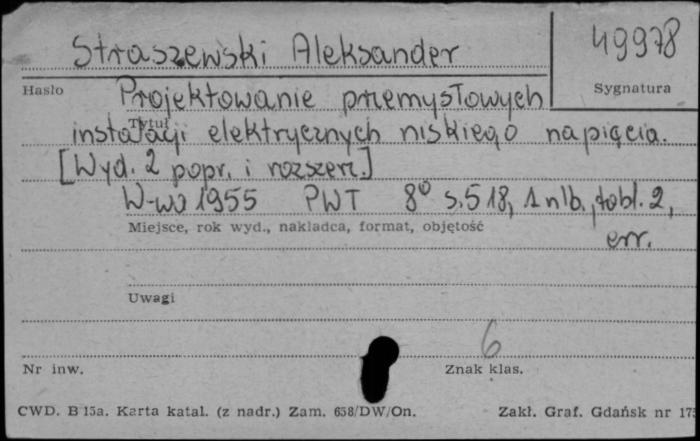 Straszewski Aleksander
49978
Hasło
Sygnatura
Projektowanie przemysłowych
Tytuł
instalacji elektrycznych niskiego napięcia.
[Wyd. 2 popr. i rozszerz.]
W-wa 1955 PWT 8° s. 518, 1 nlb., tabl. 2,
Miejsce, rok wyd., nakładca, format, objętość
err.
Uwagi
6
Nr inw.
Znak klas.
CWD. B 15a. Karta katal. (z nadr.) Zam. 658/DW/On.
Zakł. Graf. Gdańsk nr